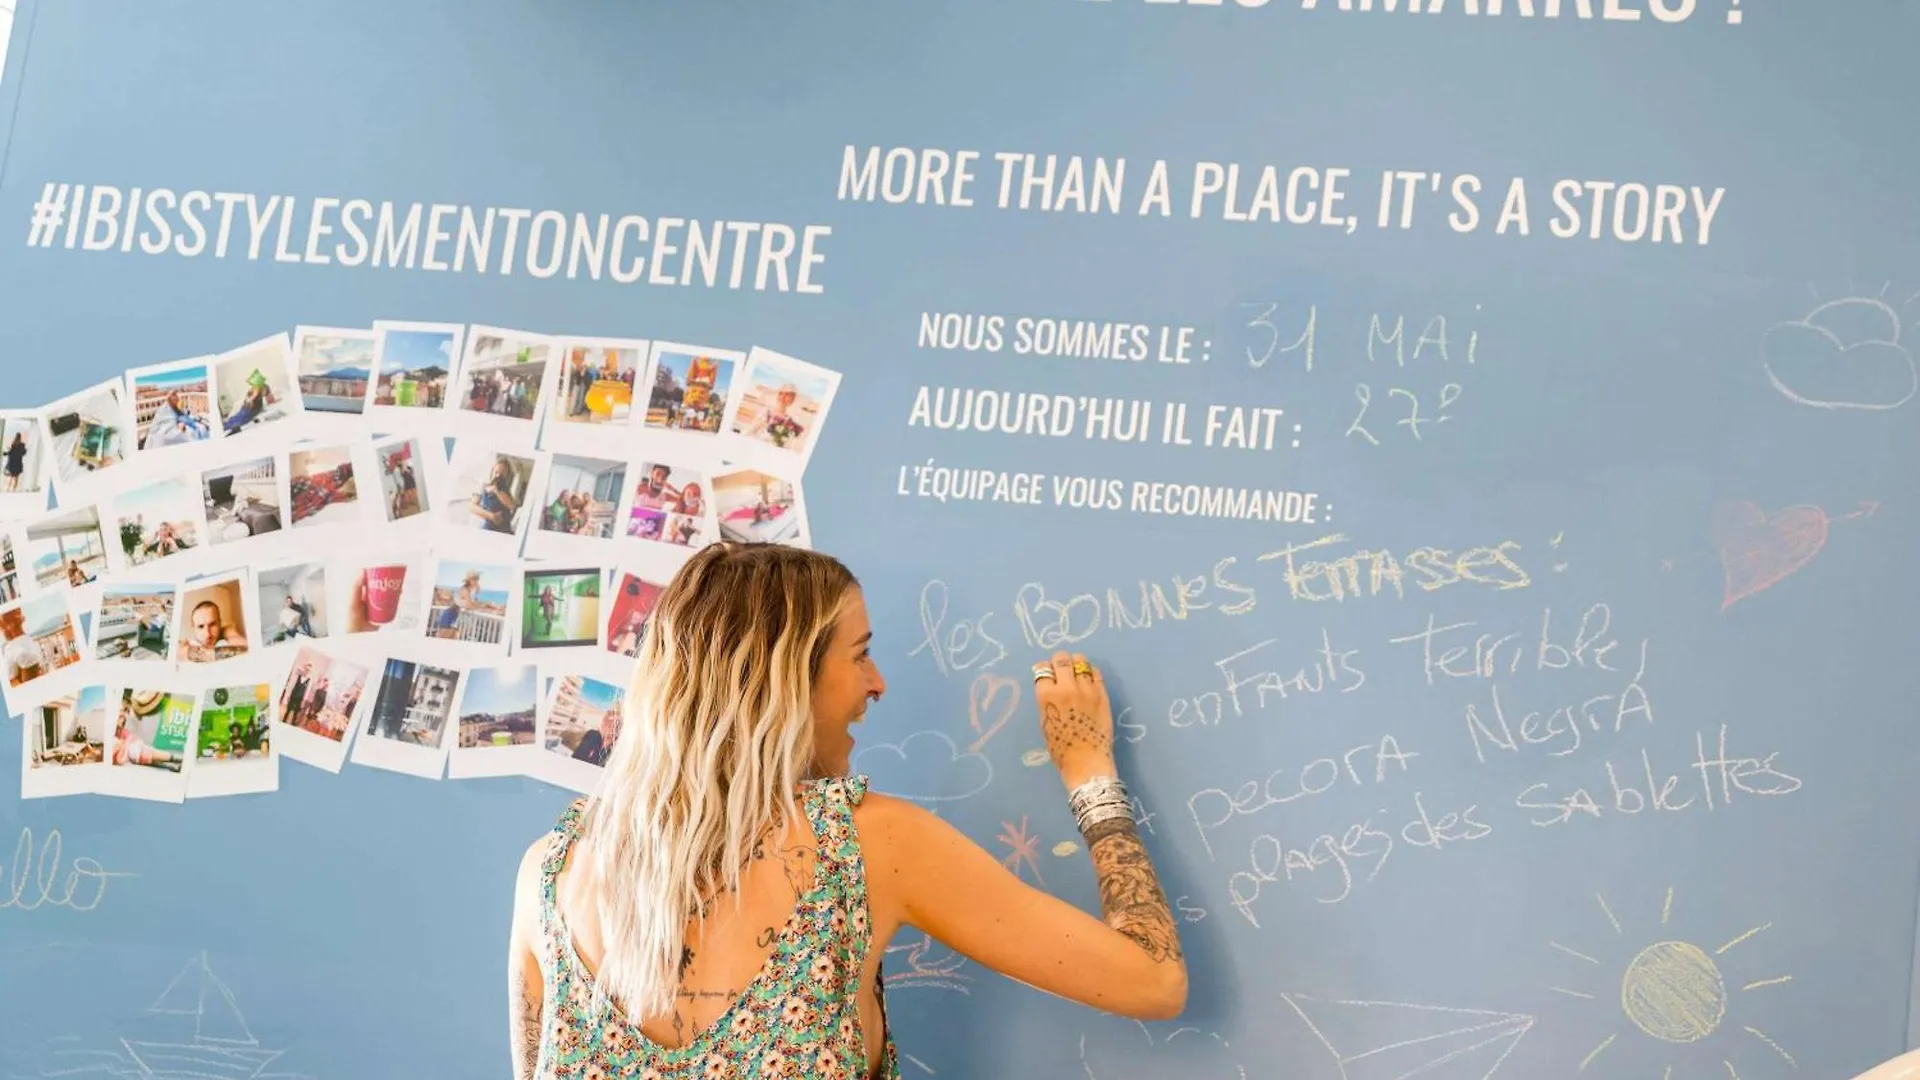 LES AMARRES !
MORE THAN A PLACE, IT'S A STORY
#IBISSTYLESMENTONCENTRE
NOUS SOMMES LE : 31 MAi
AUJOURD'HUI IL FAIT : 27º
L'ÉQUIPAGE VOUS RECOMMANDE :
les BONNES TerrASSES :
enFANts Terribles
pecorA NegrA
plAges des SAblettes
enjoy
ibis
STYLES